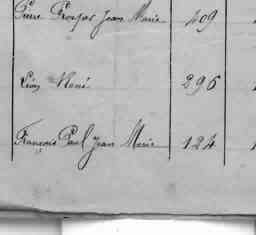 Pierre Prosper Jean Marie 409
Léon René 296
François Paul Jean Marie 124